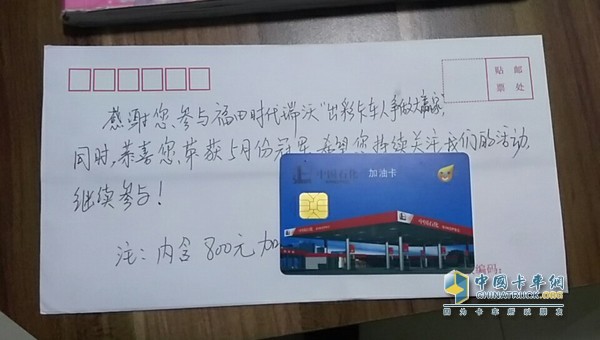 贴 邮
票 处
感谢您参与福田时代瑞沃"出彩卡车人事做大赢家"
同时,恭喜您荣获5月份冠军,希望您持续关注我们的活动,
继续参与!
中国石化 加油卡
注:内含800元加
中国石化
编码:
中国卡车网
CHINATRUCK.ORG
因为卡车所以朋友